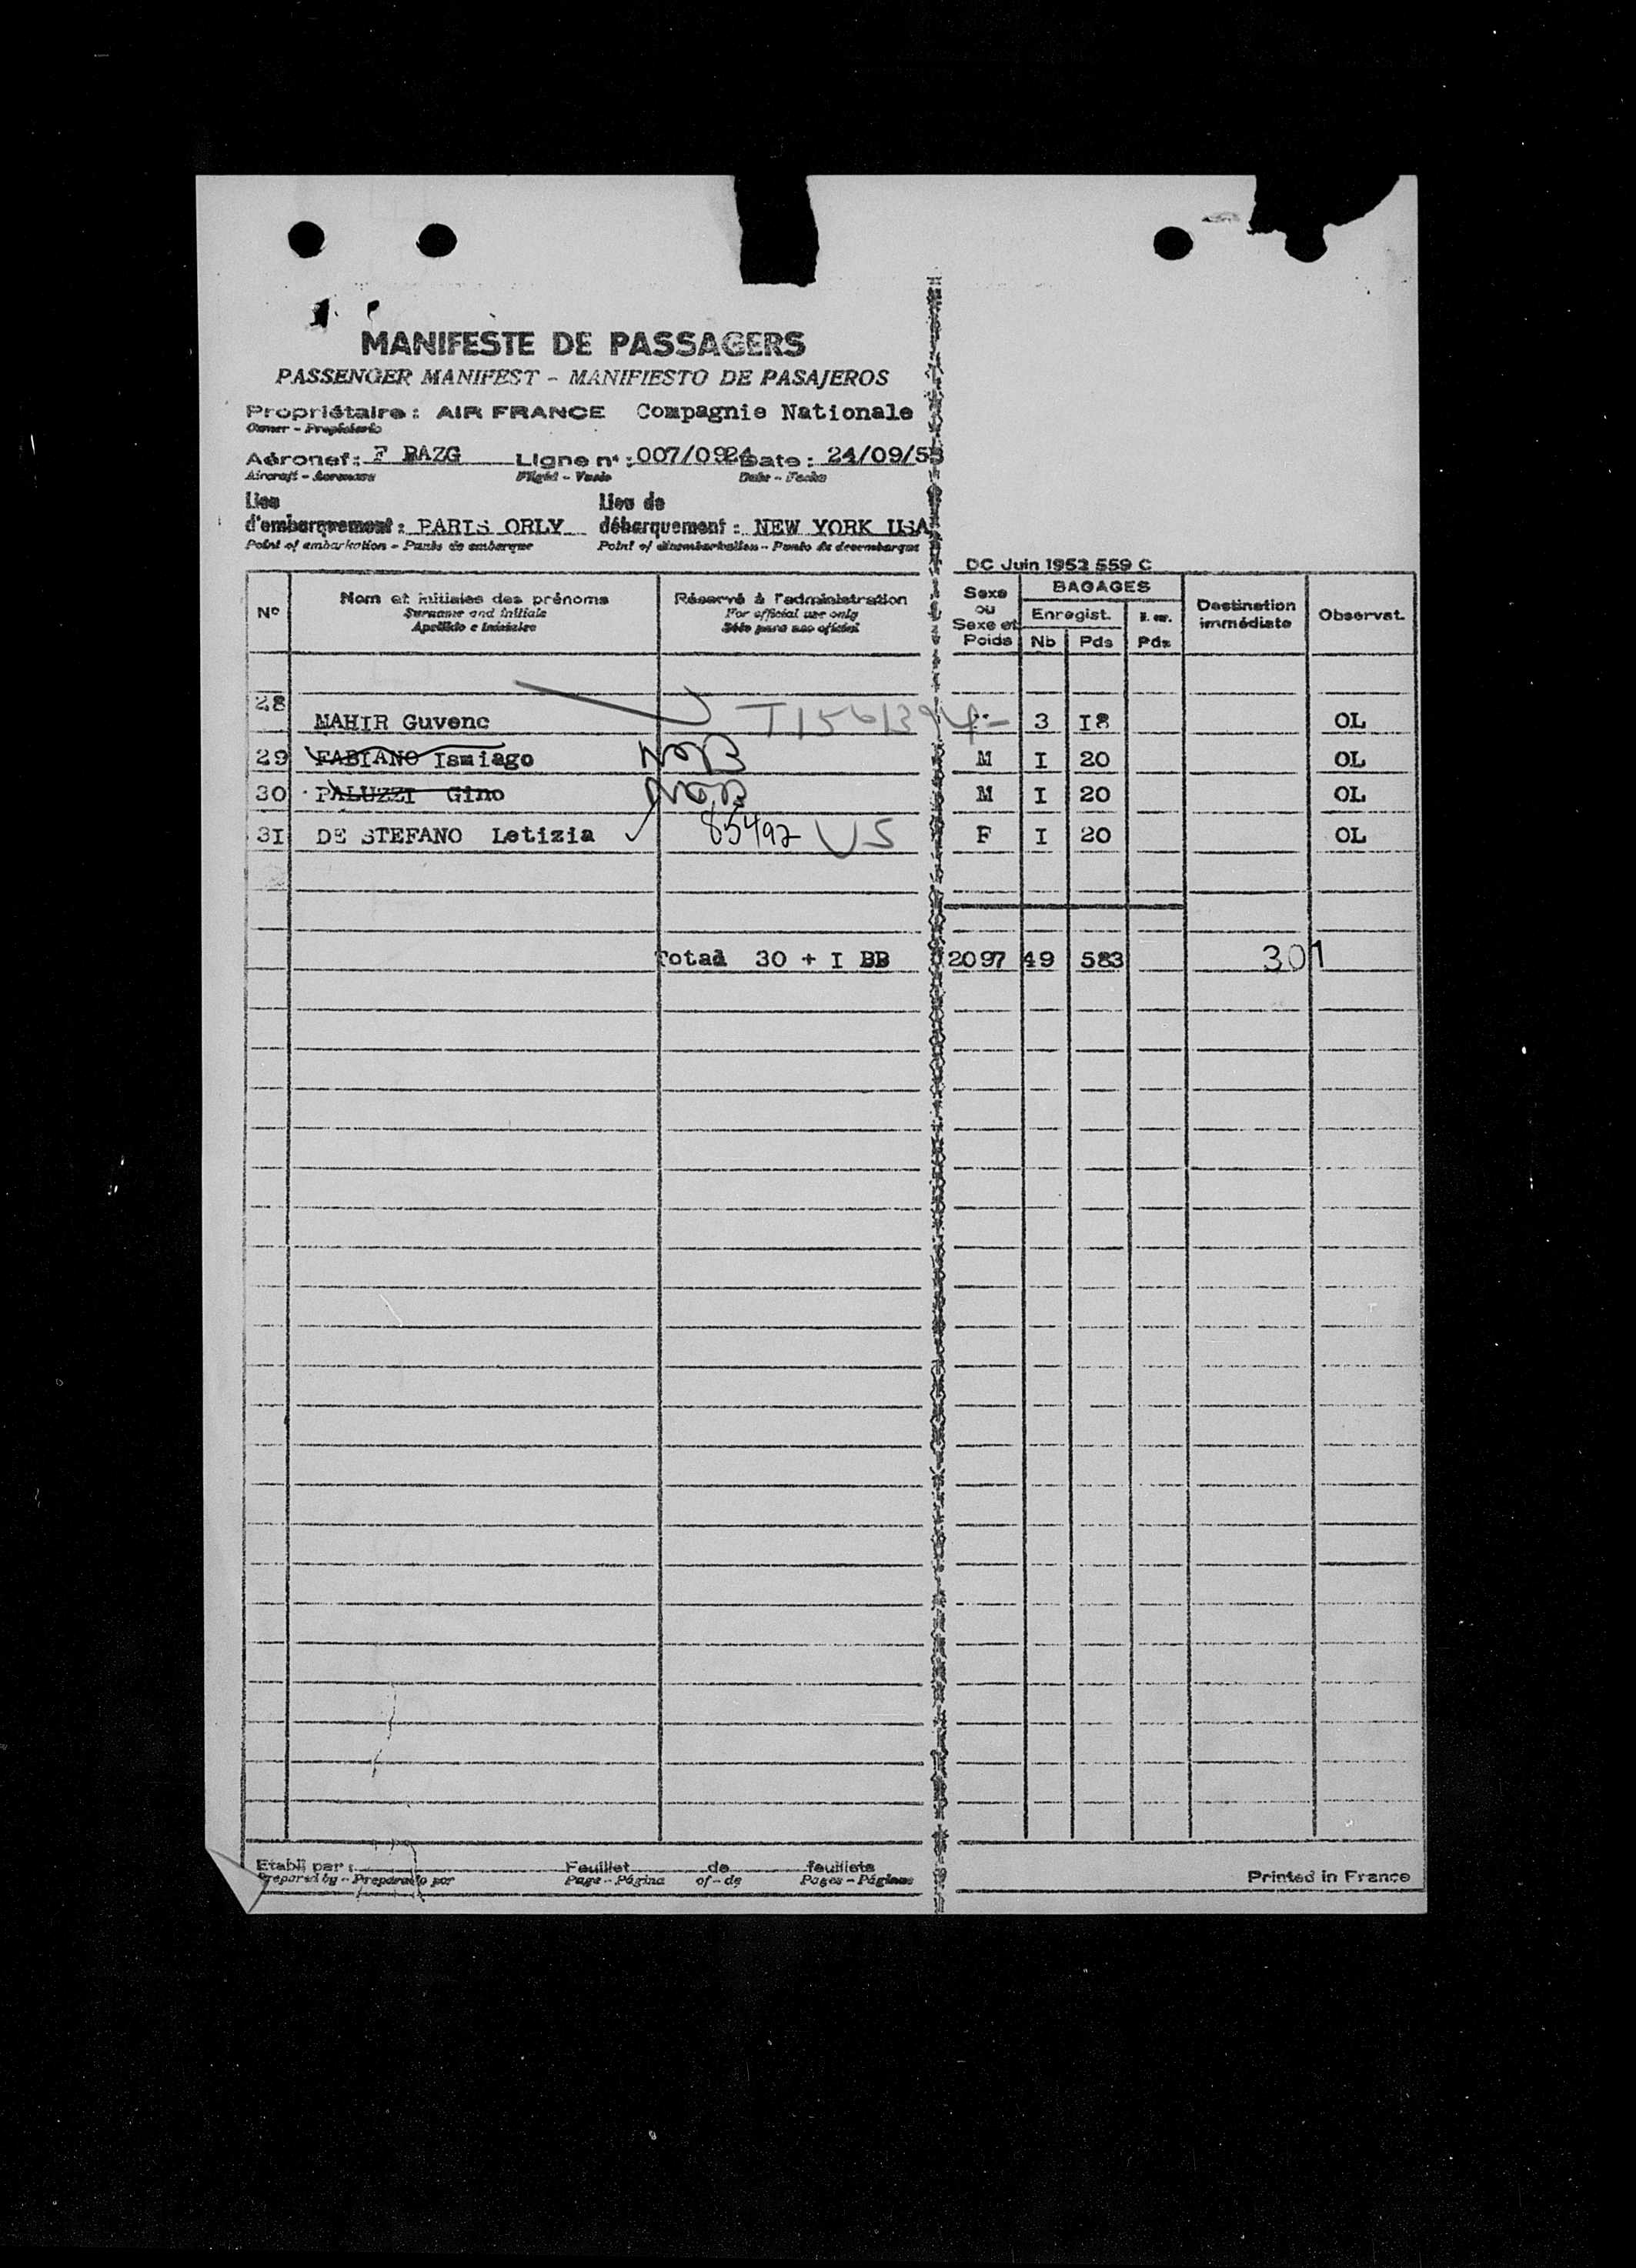 MANIFESTE DE PASSAGERS
PASSENGER MANIFEST - MANIFIESTO DE PASAJEROS
Propriétaire : AIR FRANCE Compagnie Nationale
Owner - Propietario
Aéronef : F BAZG Ligne n° : 007/0924 Date : 24/09/53
Aircraft - Aeronave Flight - Vuelo Date - Fecha
Lieu Lieu de
d'embarquement : PARIS ORLY débarquement : NEW YORK USA
Point of embarkation - Punto de embarque Point of disembarkation - Punto de desembarque
DC Juin 1952 559 C
N° Nom et initiales des prénoms Réservé à l'administration Sexe ou Sexe et Poids BAGAGES Destination immédiate Observat.
Surname and initials For official use only Enregist.
Apellido e iniciales Sólo para uso oficial Nb Pds Pds
28 MAHIR Guvenc 3 I8 OL
29 FABIANO Ismiago NOB M I 20 OL
30 PALUZZI Gino NOB M I 20 OL
3I DE STEFANO Letizia 85492 US F I 20 OL
Total 30 + I BB 2097 49 583 301
Etabli par : Feuillet de feuillets
Prepared by - Preparado por Page - Página of - de Pages - Páginas
Printed in France